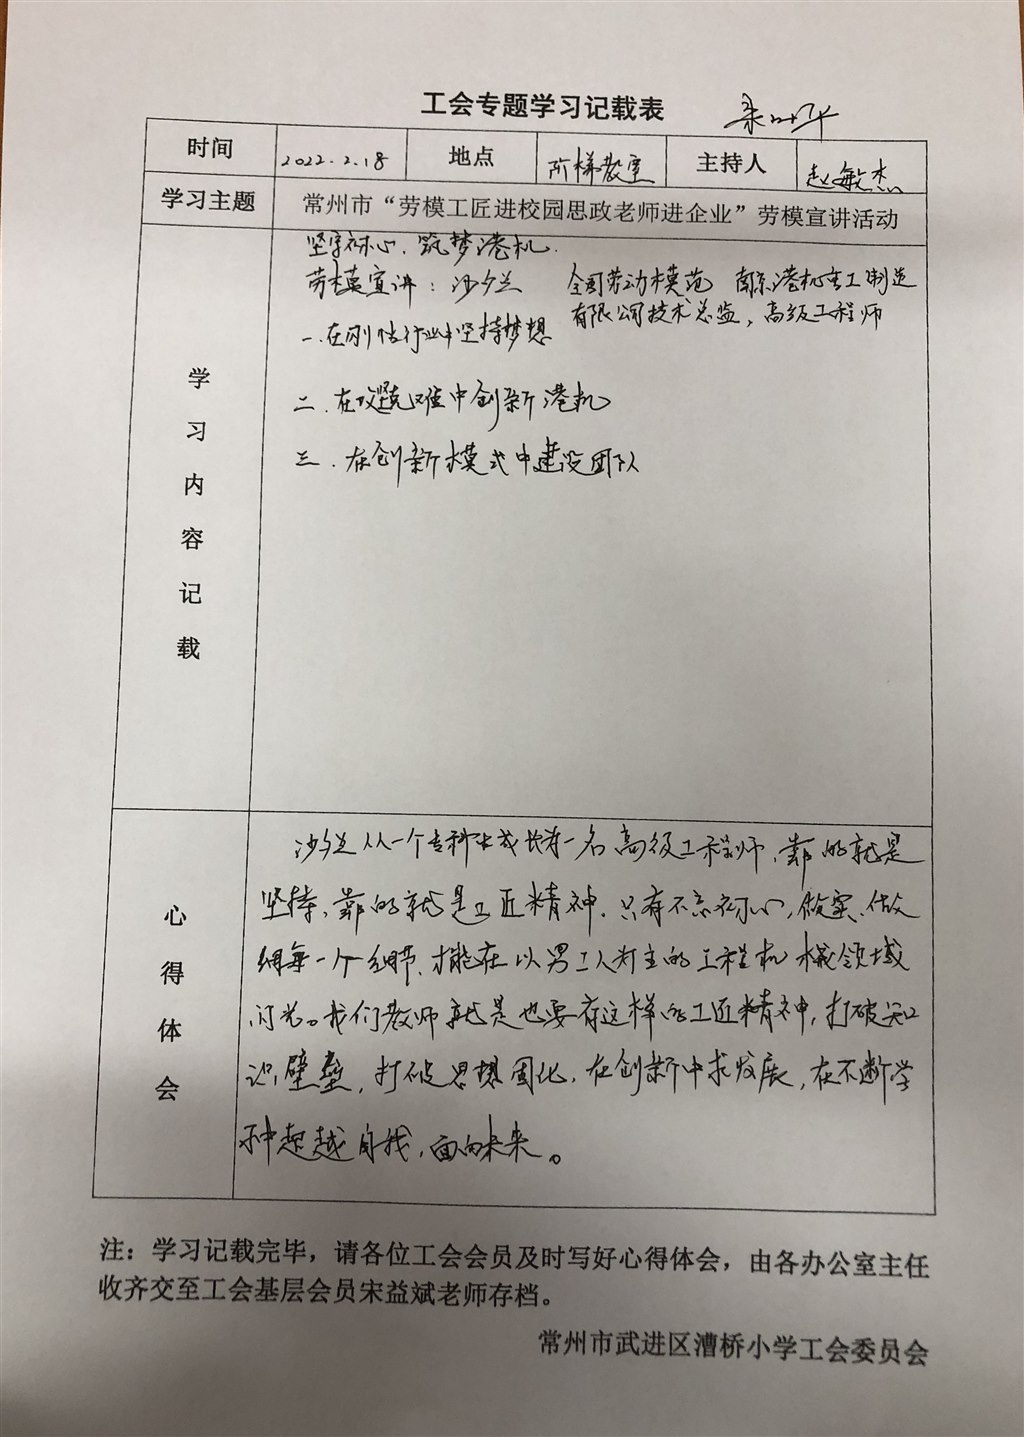 工会专题学习记载表
时间 2022.2.18 地点 阶梯教室 主持人 赵敏杰
学习主题 常州市“劳模工匠进校园思政老师进企业”劳模宣讲活动
学习内容记载
坚守初心、筑梦港机.
劳模宣讲：沙夕兰 全国劳动模范 南京港机重工制造
有限公司技术总监，高级工程师
一.在刚性行业中坚持梦想
二.在攻坚克难中创新港机
三.在创新模式中建设团队
心得体会
沙夕兰从一个专科生成长为一名高级工程师，靠的就是
坚持，靠的就是工匠精神.只有不忘初心，做实、做
细每一个细节，才能在以男工人为主的工程机械领域
闪光。我们教师就是也要有这样的工匠精神，打破知
识壁垒，打破思想固化，在创新中求发展，在不断学
习中超越自我，面向未来。
注：学习记载完毕，请各位工会会员及时写好心得体会，由各办公室主任
收齐交至工会基层会员宋益斌老师存档。
常州市武进区漕桥小学工会委员会